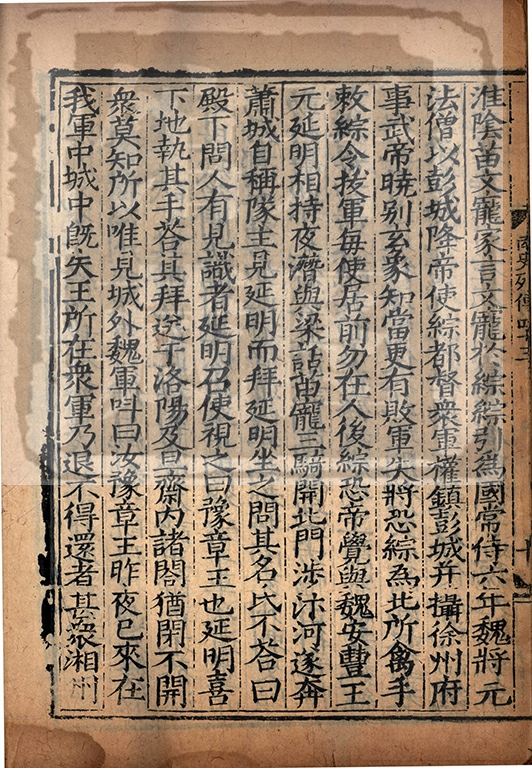 淮陰苗文寵家言文寵於綜綜引爲國常侍六年魏將元
法僧以彭城降帝使綜都督衆軍權鎮彭城并攝徐州府
事武帝曉别玄象知當更有敗軍失將恐綜爲北所禽手
敕綜令拔軍每使居前勿在人後綜恐帝覺與魏安豐王
元延明相持夜濟與梁話苗寵三騎開北門涉汴河遂奔
蕭城自稱隊主見延明而拜延明坐之問其名氏不答曰
殿下問人有見識者延明召使視之曰豫章王也延明喜
下地執其手荅其拜送于洛陽及旦齋内諸閤猶閉不開
衆莫知所以唯見城外魏軍叫曰汝豫章王昨夜已來在
我軍中城中旣失王所在衆軍乃退不得還者甚衆湘州